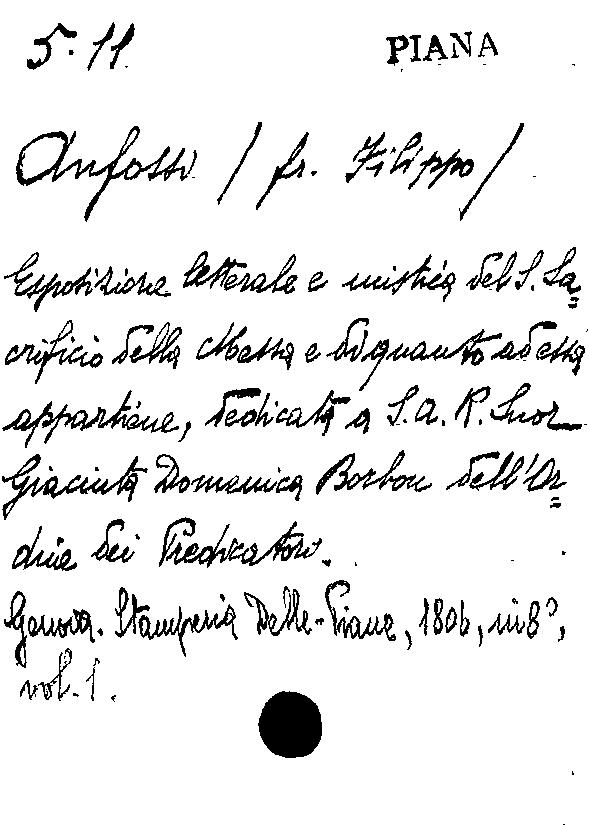 5.11 PIANA
Anfossi / fr. Filippo /
Esposizione letterale e mistica del S. Sa=
crificio della Messa e di quanto ad essa
appartiene, dedicata a S. A. R. Suor
Giacinta Domenica Borbon dell'Or=
dine dei Predicatori.
Genova. Stamperia Delle-Piane, 1806, in 8°,
vol. 1.